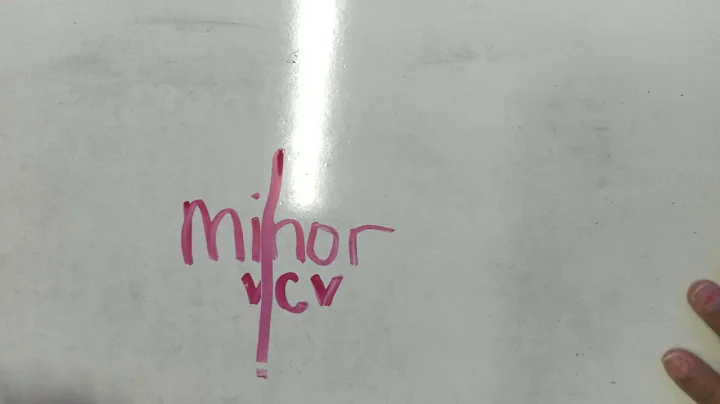 mi/nor
v/cv